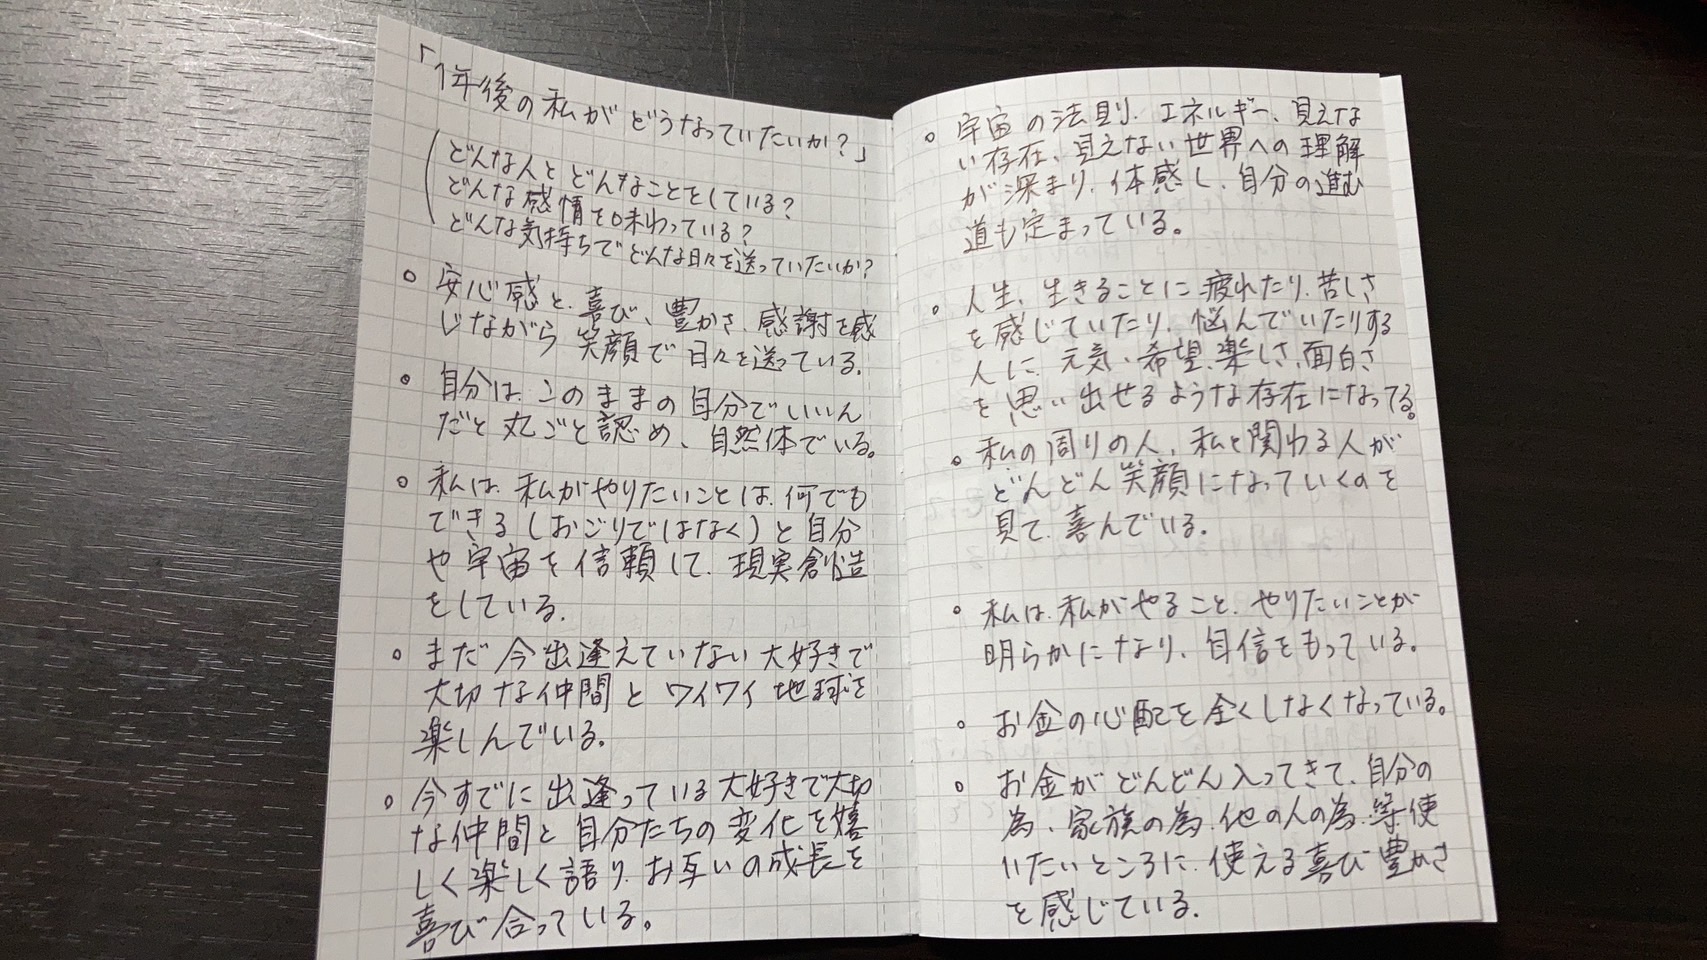 「1年後の私がどうなっていたいか?」
(どんな人とどんなことをしている?
どんな感情を味わっている?
どんな気持ちでどんな日々を送っていたいか?
○ 安心感と、喜び、豊かさ、感謝を感
じながら笑顔で日々を送っている。
○ 自分は、このままの自分でいいん
だと丸ごと認め、自然体でいる。
○ 私は、私がやりたいことは、何でも
できる(おごりではなく)と自分
や宇宙を信頼して、現実創造
をしている。
○ まだ今出逢えていない大好きで
大切な仲間とワイワイ地球を
楽しんでいる。
○ 今すでに出逢っている大好きで大切
な仲間と自分たちの変化を嬉
しく楽しく語り、お互いの成長を
喜び合っている。
○ 宇宙の法則、エネルギー、見えな
い存在、見えない世界への理解
が深まり、体感し、自分の進む
道も定まっている。
○ 人生、生きることに疲れたり、苦しさ
を感じていたり、悩んでいたりする
人に、元気、希望、楽しさ、面白さ
を思い出せるような存在になってる。
○ 私の周りの人、私と関わる人が
どんどん笑顔になっていくのを
見て、喜んでいる。
○ 私は、私がやること、やりたいことが
明らかになり、自信をもっている。
○ お金の心配を全くしなくなっている。
○ お金がどんどん入ってきて、自分の
為、家族の為、他の人の為、等使
いたいところに、使える喜び豊かさ
を感じている。